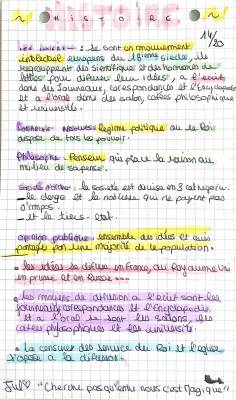 HISTOIRE
14/20
Les Lumières : se sont un mouvement
intelectuel européens du 18ième siècle, ils
regrouppent des scientifiques et des hommes de
lettres pour diffuser leur idées, a l'écrit
dans des journeaux, correspondances et l'Encyclopédie
et a l'oral dans des salon, cafés philosophique
et université.
Monarchie absolue: Régime politique ou le Roi
dispose de tous les pouvoir.
Philosophe: Penseur qui place la raison au
milieu de sa pensé.
: la société est divisé en 3 catégorie.
_ le clergé et la noblesse qui ne payent pas
d'impos.
_ et le tiers-état.
opinion publique: ensemble des idées et avis
partagés par une majorité de la population.
• les idées se diffuse en France, au Royaume Uni
en prusse et en Russie
• les moyens de difusion a l'écrit sont les
journeaux, correspondances et l'encyclopédie
et a l'oral se sont les salons, les
cafés phylosophiques et les université.
• la censure des service du Roi et l'église
s'opose a la difusion.
"Cherche pas qu'entre nous c'est Magique"